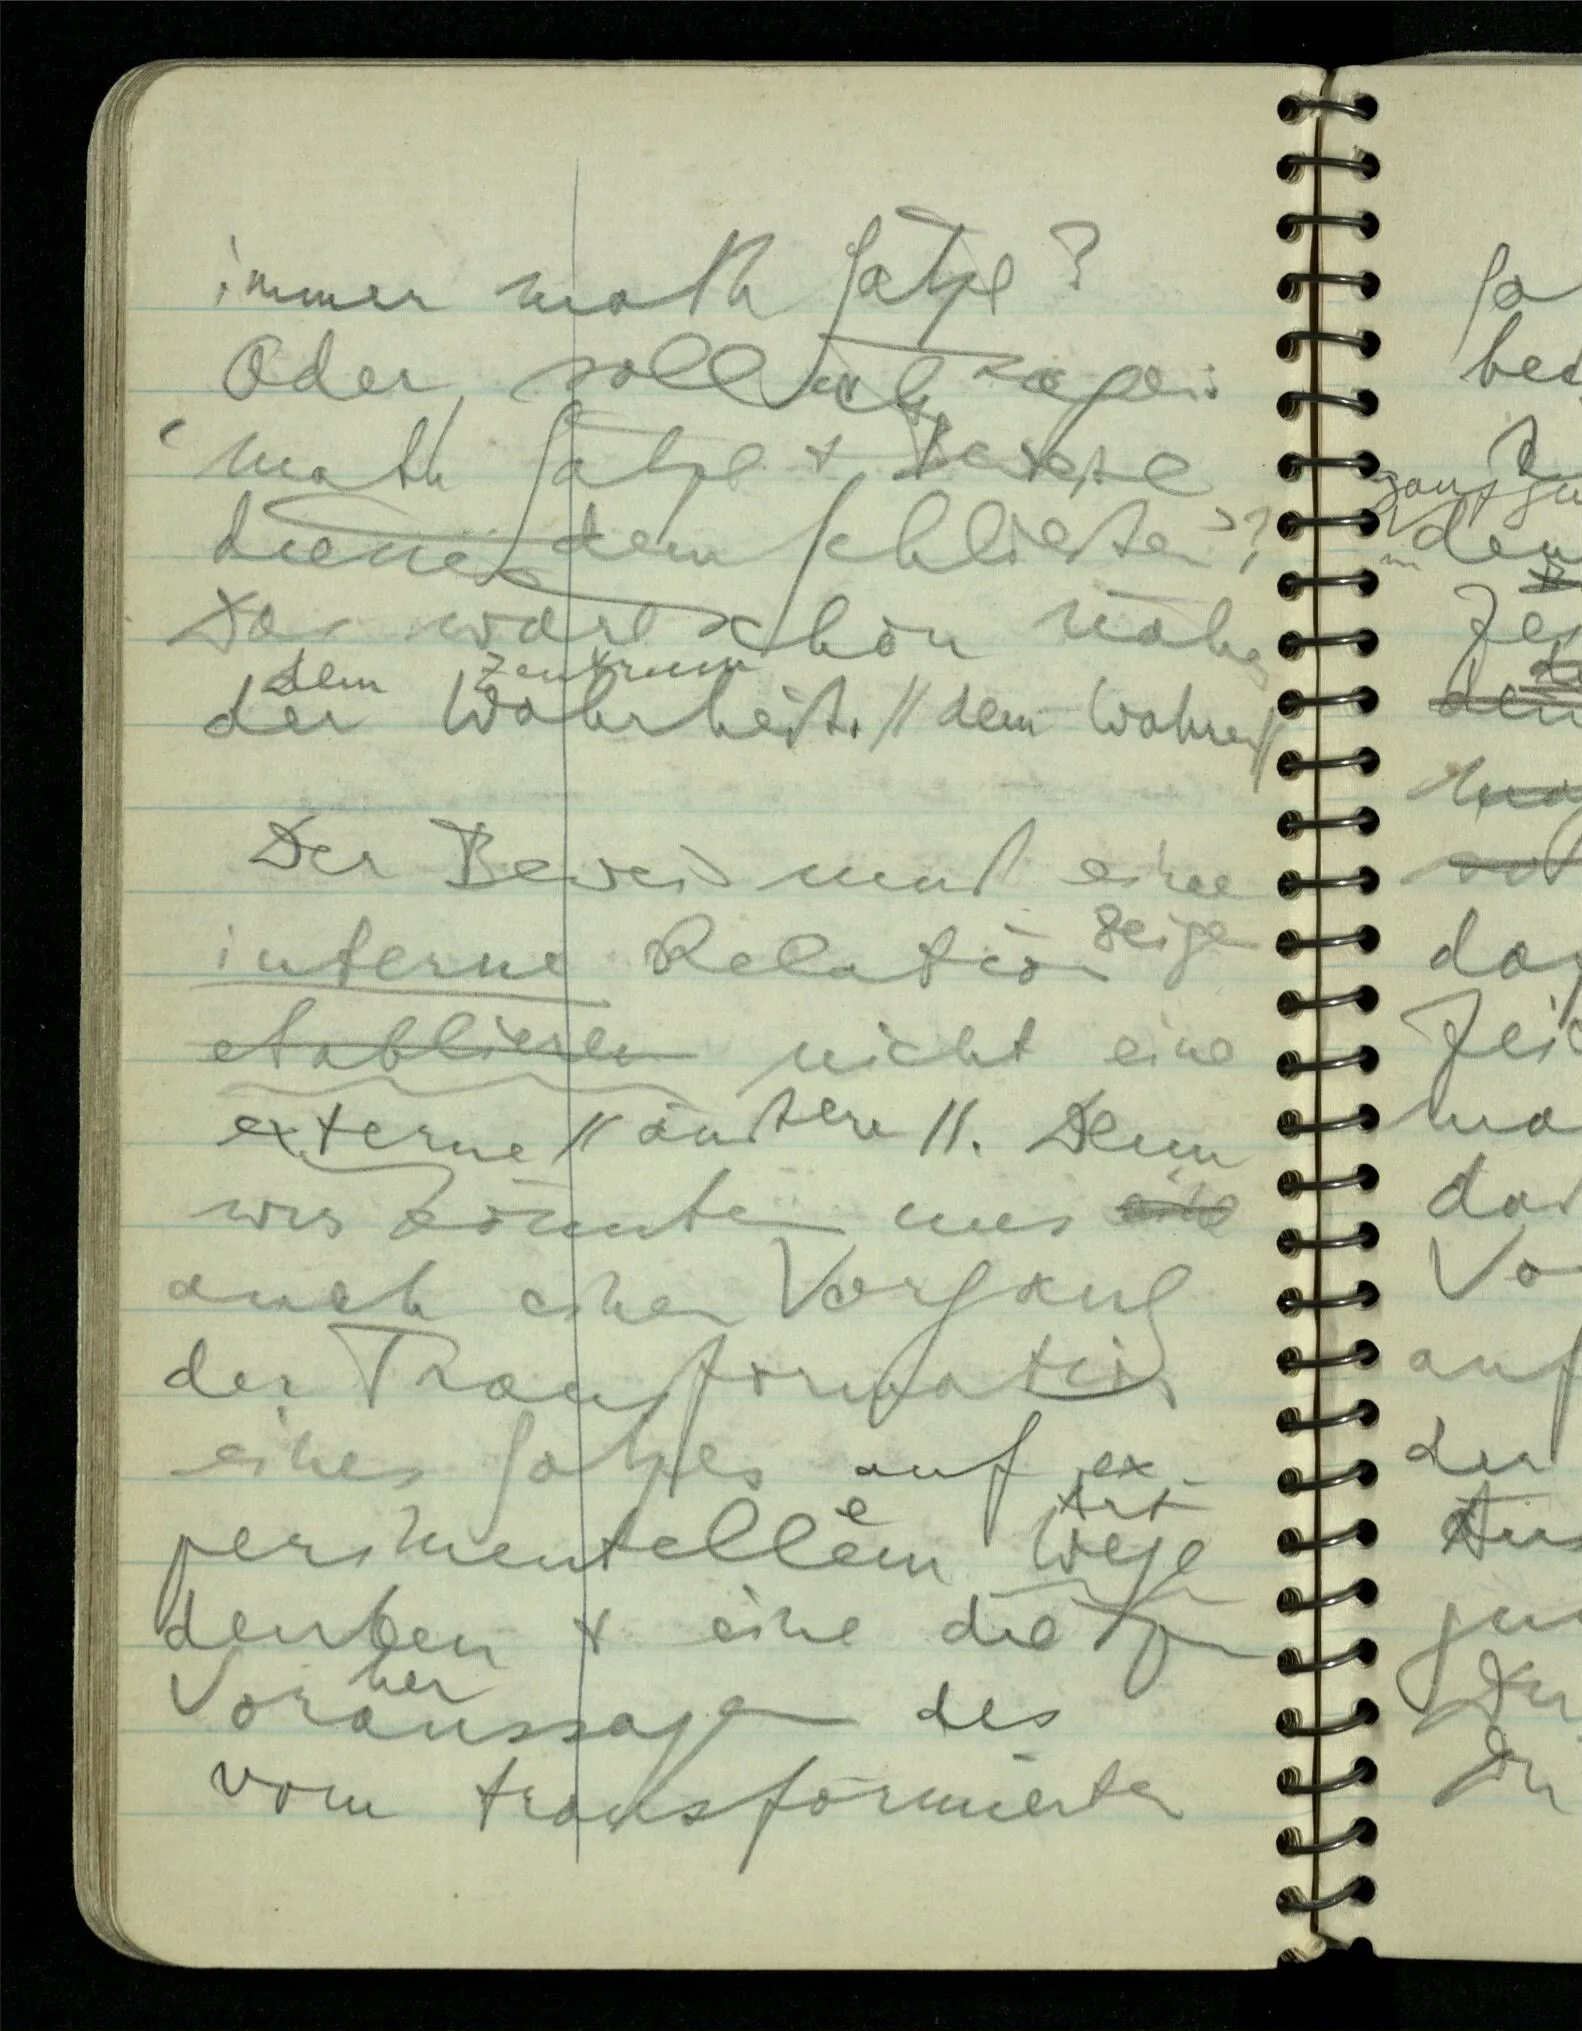 immer math Sätze?
Oder soll ich sagen:
'math Sätze + Beweise
dienen dem Schließen'?
Das wäre schon näher
dem Zentrum
der Wahrheit. // dem Wahren //
Der Beweis muß eine
interne Relation zeigen
etablieren nicht eine
externe // äußere //. Denn
wir könnten uns eine
auch einen Vorgang
der Transformation
eines Satzes auf ex-
e Art
perimentellem Wege
denken + eine die zum
her
Voraussagen des
vom transformierten
ganz
den
auf
der